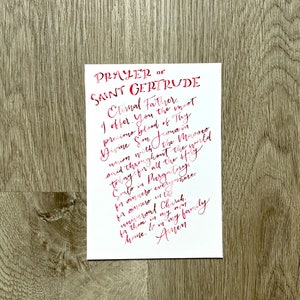 PRAYER OF
SAINT GERTRUDE
Eternal Father,
I offer You the most
precious blood of Thy
Divine Son, Jesus, in
union with the Masses
said throughout the world
today, for all the Holy
Souls in Purgatory
for sinners everywhere
for sinners in the
universal Church,
for those in my own
home & in my family
Amen